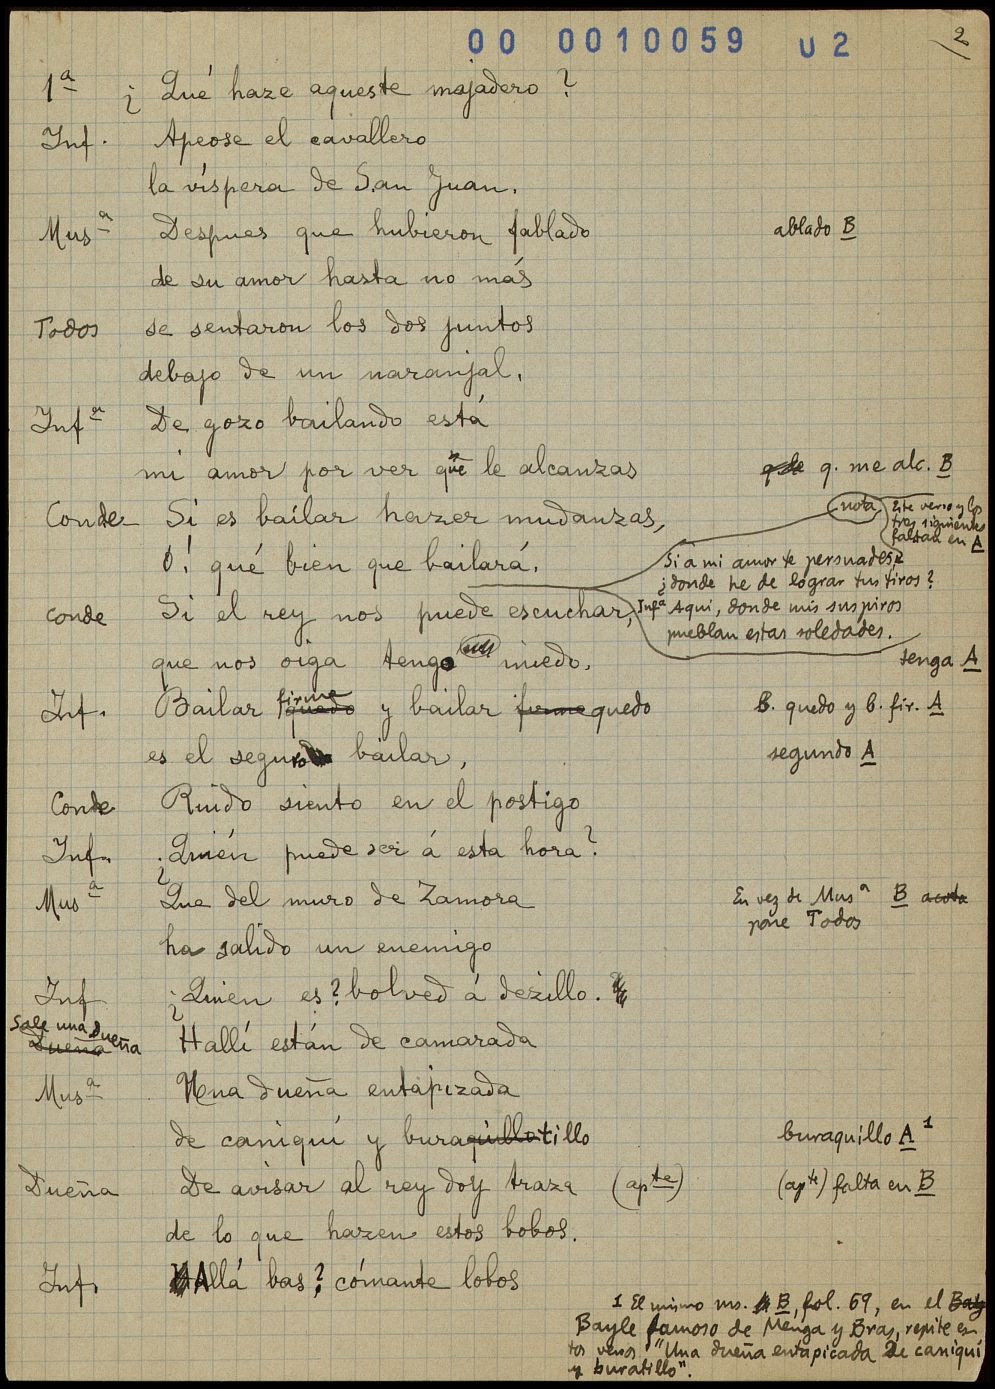 00 0010059 U 2
2
1ª ¿Qué haze aqueste majadero?
Inf. Apeose el cavallero
la víspera de San Juan.
Musª Despues que hubieron fablado ablado B
de su amor hasta no más
Todos se sentaron los dos juntos
debajo de un naranjal.
Infª De gozo bailando está
mi amor por ver que le alcanzas q. me alc. B
Conde Si es bailar hazer mudanzas, nota Este verso y los
tres siguientes
faltan en A
O! qué bien que bailará.
Si á mi amor te persuades,
¿donde he de lograr tus tiros?
Infª Aquí, donde mis suspiros
pueblan estas soledades.
Conde Si el rey nos puede escuchar,
que nos oiga tengo miedo. tenga A
Inf. Bailar quedo firme y bailar firme quedo B. quedo y b. fir. A
es el seguro bailar, segundo A
Conde Ruido siento en el postigo
Inf. ¿Quién puede ser á esta hora?
Musª Que del muro de Zamora En vez de Musª B acota
pone Todos
ha salido un enemigo
Inf. ¿Quien es? bolved á dezillo.
Sale una Dueña
Dueña Hallí están de camarada
Musª Una dueña entapizada
de caniquí y buraquillo tillo buraquillo A 1
Dueña De avisar al rey doy traza (apte) (apte) falta en B
de lo que hazen estos bobos.
Inf. Allá bas? cómante lobos
1 El mismo ms. B, fol. 69, en el Bay
Bayle famoso de Menga y Bras, repite es-
tos versos: "Una dueña entapicada de caniquí
y buratillo".